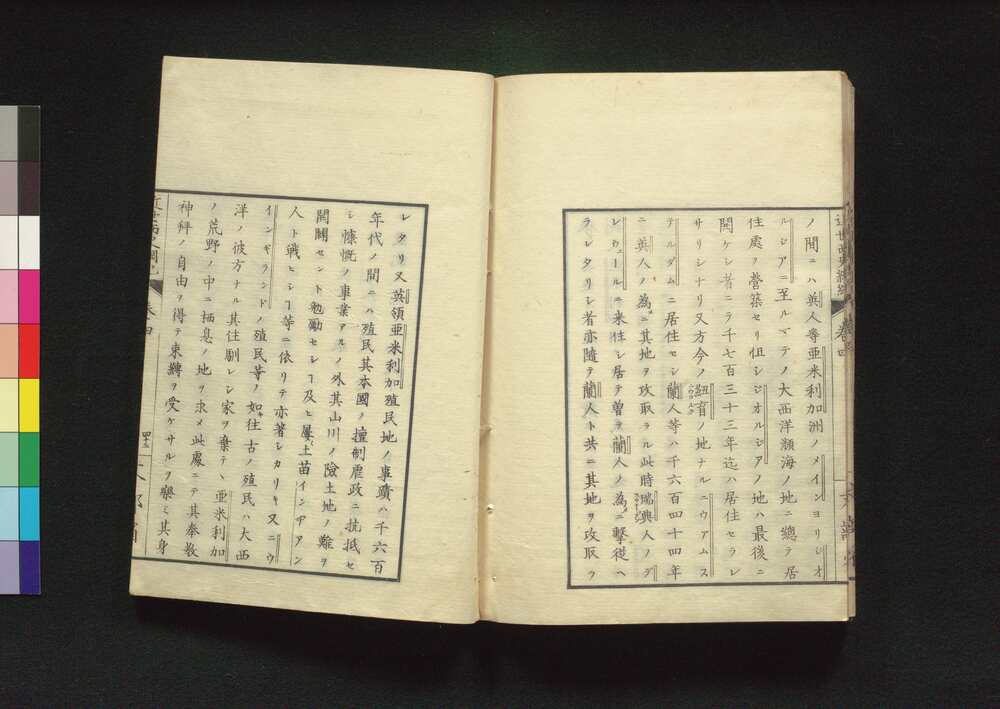 近世西史綱紀 卷四
ノ間ニハ英人等亜米利加洲ノメインヨリジオ
ルジアニ至ルマテノ大西洋瀕海ノ地ニ總テ居
住處ヲ營築セリ但シジオルジアノ地ハ最後ニ
開ケシ者ニテ千七百三十三年迄ハ居住セラレ
サリシナリ又方今ノ紐育ノ地ナルニウアムス
テルダムニ居住セシ蘭人等ハ千六百四十四年
ニ英人ノ為ニ其地ヲ攻取ラル此時瑞典人ノデ
レウェールニ来住シ居テ曽テ蘭人ノ為ニ擊從ヘ
ラレタリシ者亦隨テ蘭人ト共ニ其地ヲ攻取ラ
レタリ又英領亜米利加殖民地ノ事蹟ハ千六百
年代ノ間ニハ殖民其本國ノ擅制虐政ニ抗抵セ
シ慷慨ノ事業アルノ外其山川ノ險土地ノ難ヲ
開闢セント勉勵セシヿ及ヒ屢土苗インヂアン
人ト戰ヒシヿ等ニ依リテ亦著シカリキ又ニウ
インギランドノ殖民等ノ如キ往古ノ殖民ハ大西
洋ノ彼方ナル其住馴レシ家ヲ棄テヽ亜米利加
ノ荒野ノ中ニ栖息ノ地ヲ求メ此處ニテ其奉教
神拜ノ自由ヲ得テ束縛ヲ受ケサルヲ樂ミ其身
卷四